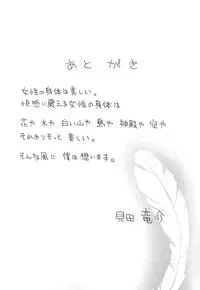 あとがき
女性の身体は美しい。
快感に震える女性の身体は
花や木や白い山や島や神殿や空や
それよりもっと美しい。
そんな風に僕は想います。
見田竜介